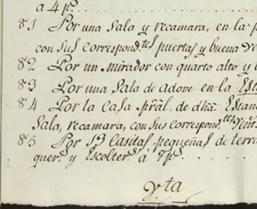 a 4 ps.
81 Por una Sala y recamara, en la p
con sus correspondtes puertas y buena
82 Por un Mirador con quarto alto y
83 Por una Sala de Adove en la Esta
84 Por la Casa pral. de dha Estan
Sala, recamara, con sus correspons.tes
85 Por 19 Casitas pequeñas de terra
quers y Escolters a 7 ps.
Vta